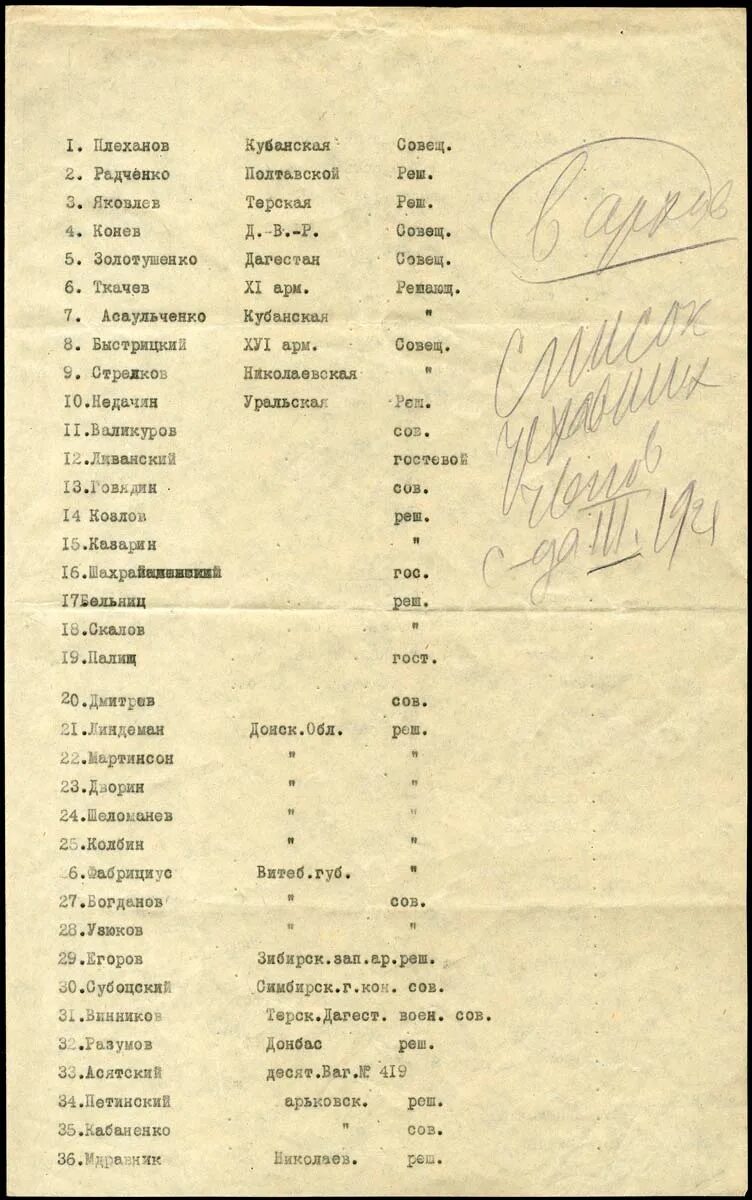 1. Плеханов Кубанская Совещ.
2. Радченко Полтавской Реш.
3. Яковлев Терская Реш.
4. Конев Д.-В.-Р. Совещ.
5. Золотушенко Дагестан Совещ.
6. Ткачев XI арм. Решающ.
7. Асаульченко Кубанская "
8. Быстрицкий ХУI арм. Совещ.
9. Стрелков Николаевская "
10.Недачин Уральская Реш.
11.Валикуров сов.
12.Ливанский гостевой
13.Говядин сов.
14 Козлов реш.
15.Казарин "
16. гос.
17Бельниц реш.
18.Скалов "
19.Палищ гост.
20.Дмитрев сов.
21.Линдеман Донск.Обл. реш.
22.Мартинсон " "
23.Дворин " "
24.Шеломанев " "
25.Колбин " "
26.Фабрициус Витеб.губ. "
27.Богданов " сов.
28.Узюков " "
29.Егоров Зибирск.зап.ар.реш.
30.Субоцский Симбирск.г.кон. сов.
31.Винников Терск.Дагест. воен. сов.
32.Разумов Донбас реш.
33.Асятский десят.Ваг.№ 419
34.Петинский арьковск. реш.
35.Кабаненко " сов.
36.Мдравник Николаев. реш.
В архив
Список
уехавших
членов
с-да III. 1921